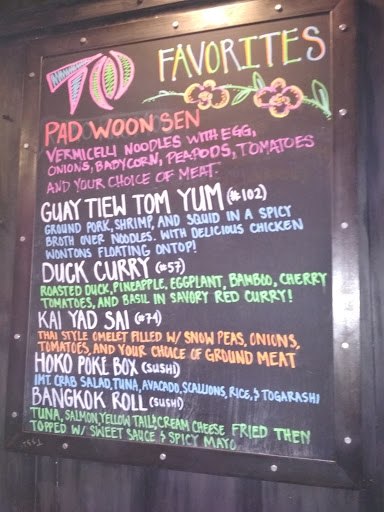 70 FAVORITES
PAD WOON SEN
VERMICELLI NOODLES WITH EGG,
ONIONS, BABYCORN, PEAPODS, TOMATOES
AND YOUR CHOICE OF MEAT.
GUAY TIEW TOM YUM (#102)
GROUND PORK, SHRIMP, AND SQUID IN A SPICY
BROTH OVER NOODLES. WITH DELICIOUS CHICKEN
WONTONS FLOATING ONTOP!
DUCK CURRY (#57)
ROASTED DUCK, PINEAPPLE, EGGPLANT, BAMBOO, CHERRY
TOMATOES, AND BASIL IN SAVORY RED CURRY!
KAI YAD SAI (#74)
THAI STYLE OMELET FILLED W/ SNOW PEAS, ONIONS,
TOMATOES, AND YOUR CHOICE OF GROUND MEAT
HOKO POKE BOX (SUSHI)
IMT. CRAB SALAD, TUNA, AVACADO, SCALLIONS, RICE, & TOGARASHI
BANGKOK ROLL (SUSHI)
TUNA, SALMON, YELLOW TAIL, CREAM CHEESE FRIED THEN
TOPPED W/ SWEET SAUCE & SPICY MAYO